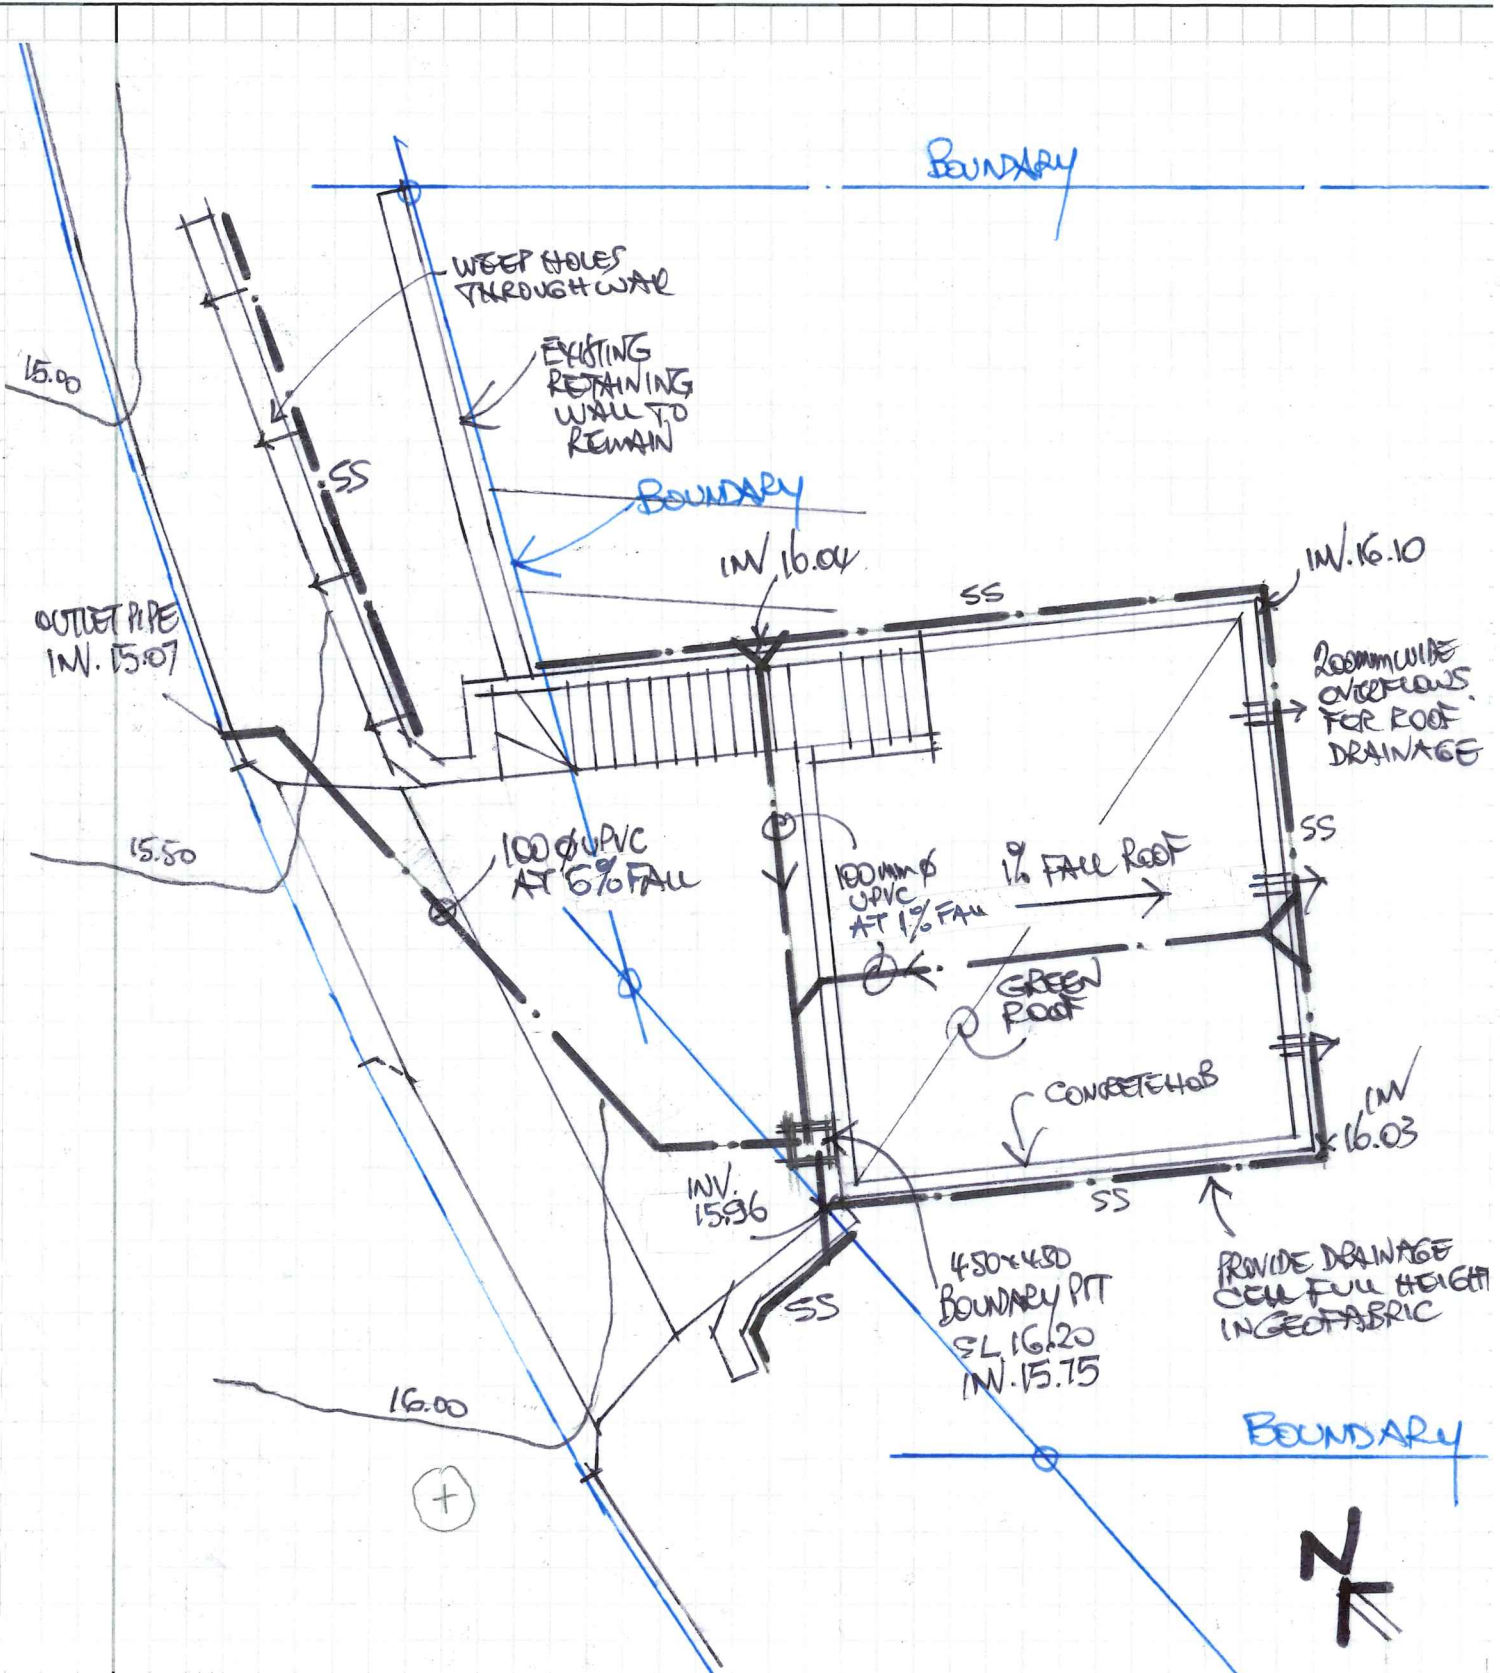 BOUNDARY
WEEP HOLES
THROUGH WAR
EXISTING
RETAINING
WALL TO
REMAIN
15.00
SS
BOUNDARY
INV 16.04
SS
INV. 16.10
OUTLET PIPE
INV. 15.07
200mm WIDE
OVERFLOWS
FOR ROOF
DRAINAGE
SS
15.50
100 ϕ UPVC
AT 6% FALL
100mm ϕ
UPVC
AT 1% FALL
1% FALL ROOF
GREEN
ROOF
CONCRETE HOB
INV
16.03
INV.
15.96
SS
SS
450x450
BOUNDARY PIT
SL 16.20
INV. 15.75
PROVIDE DRAINAGE
CELL FULL HEIGHT
IN GEOFABRIC
16.00
BOUNDARY
N